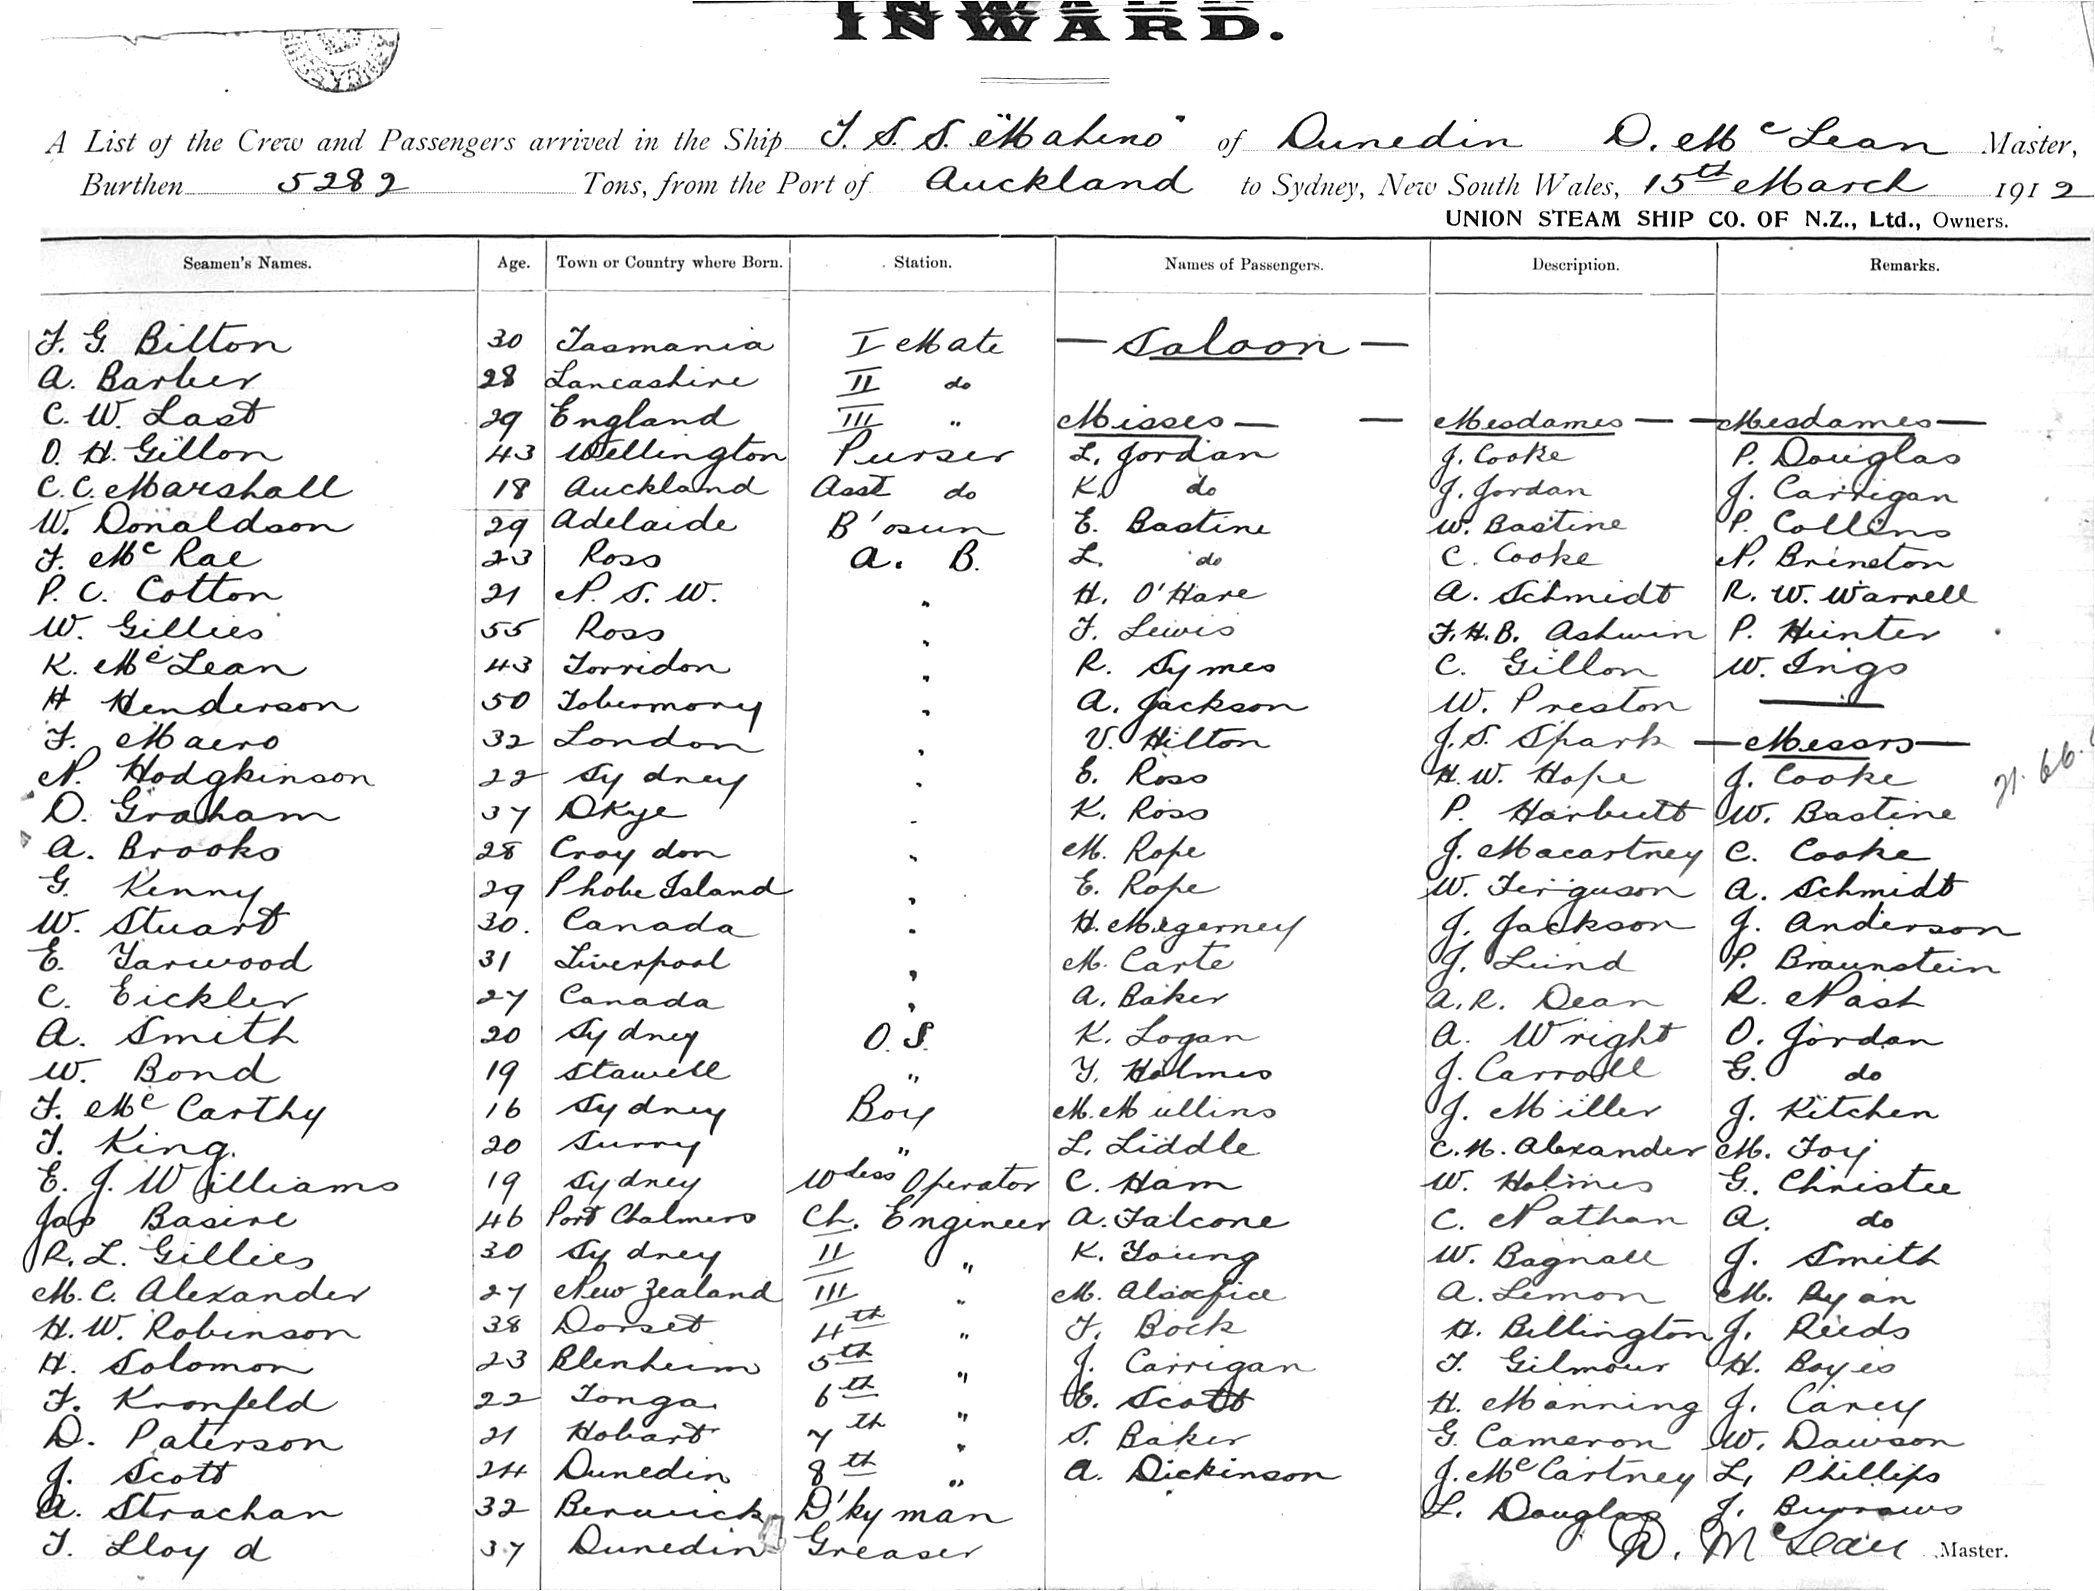 INWARD.
A List of the Crew and Passengers arrived in the Ship T. S. S. "Maheno" of Dunedin D. McLean Master,
Burthen 5282 Tons, from the Port of Auckland to Sydney, New South Wales, 15th March 1912
UNION STEAM SHIP CO. OF N.Z., Ltd., Owners.
Seamen's Names. Age. Town or Country where Born. Station. Names of Passengers. Description. Remarks.
F. G. Bilton 30 Tasmania I Mate — Saloon —
A. Barber 28 Lancashire II do
C. W. Last 29 England III " Misses — — Mesdames — — Mesdames —
D. H. Gillon 43 Wellington Purser L. Jordan J. Cooke P. Douglas
C. C. Marshall 18 Auckland Asst do K. do J. Jordan J. Carrigan
W. Donaldson 29 Adelaide B'osun E. Bastine W. Bastine P. Collins
F. McRae 23 Ross A. B. L. do C. Cooke N. Brinston
P. C. Cotton 21 N. S. W. " H. O'Hare A. Schmidt R. W. Warrell
W. Gillies 55 Ross " F. Lewis F. H. B. Ashwin P. Hunter
K. McLean 43 Torridon " R. Symes C. Gillon W. Ings
H Henderson 50 Tobermory " A. Jackson W. Preston
F. Maero 32 London " V. Hilton J. S. Spark — Messrs —
N. Hodgkinson 22 Sydney " E. Ross H. W. Hope J. Cooke
D. Graham 37 Skye " K. Ross P. Harbutt W. Bastine
A. Brooks 28 Croydon " M. Rope J. Macartney C. Cooke
G. Kenny 29 Phobe Island " E. Rope W. Ferguson A. Schmidt
W. Stuart 30. Canada " H. Megerney J. Jackson J. Anderson
E. Yarwood 31 Liverpool " M. Carte J. Lund P. Braunstein
C. Eickler 27 Canada " A. Baker A. R. Dean R. Nash
A. Smith 20 Sydney O. S. K. Logan A. Wright O. Jordan
W. Bond 19 Stawell " Y. Holmes J. Carroll G. do
F. McCarthy 16 Sydney Boy M. Mullins J. Miller J. Kitchen
T. King. 20 Surry " L. Liddle C. M. Alexander M. Foy
E. J. Williams 19 Sydney Wless Operator C. Ham W. Holmes G. Christie
Jas Basire 46 Port Chalmers Ch. Engineer A. Falcone C. Nathan A. do
R. L. Gillies 30 Sydney II " K. Young W. Bagnall J. Smith
M. C. Alexander 27 New Zealand III " M. A. Limon M. Ryan
H. W. Robinson 38 Dorset 4th " F. Bock H. Billington J. Reeds
H. Solomon 23 Blenheim 5th " J. Carrigan F. Gilmour H. Boyes
F. Kronfeld 22 Tonga 6th " E. Scott H. Manning J. Carey
D. Paterson 21 Hobart 7th " S. Baker G. Cameron W. Dawson
J. Scott 24 Dunedin 8th " A. Dickinson J. McCartney L. Phillips
A. Strachan 32 Berwick D'kyman L. Douglas J. Burrows
T. Lloyd 37 Dunedin Greaser D. McLean Master.